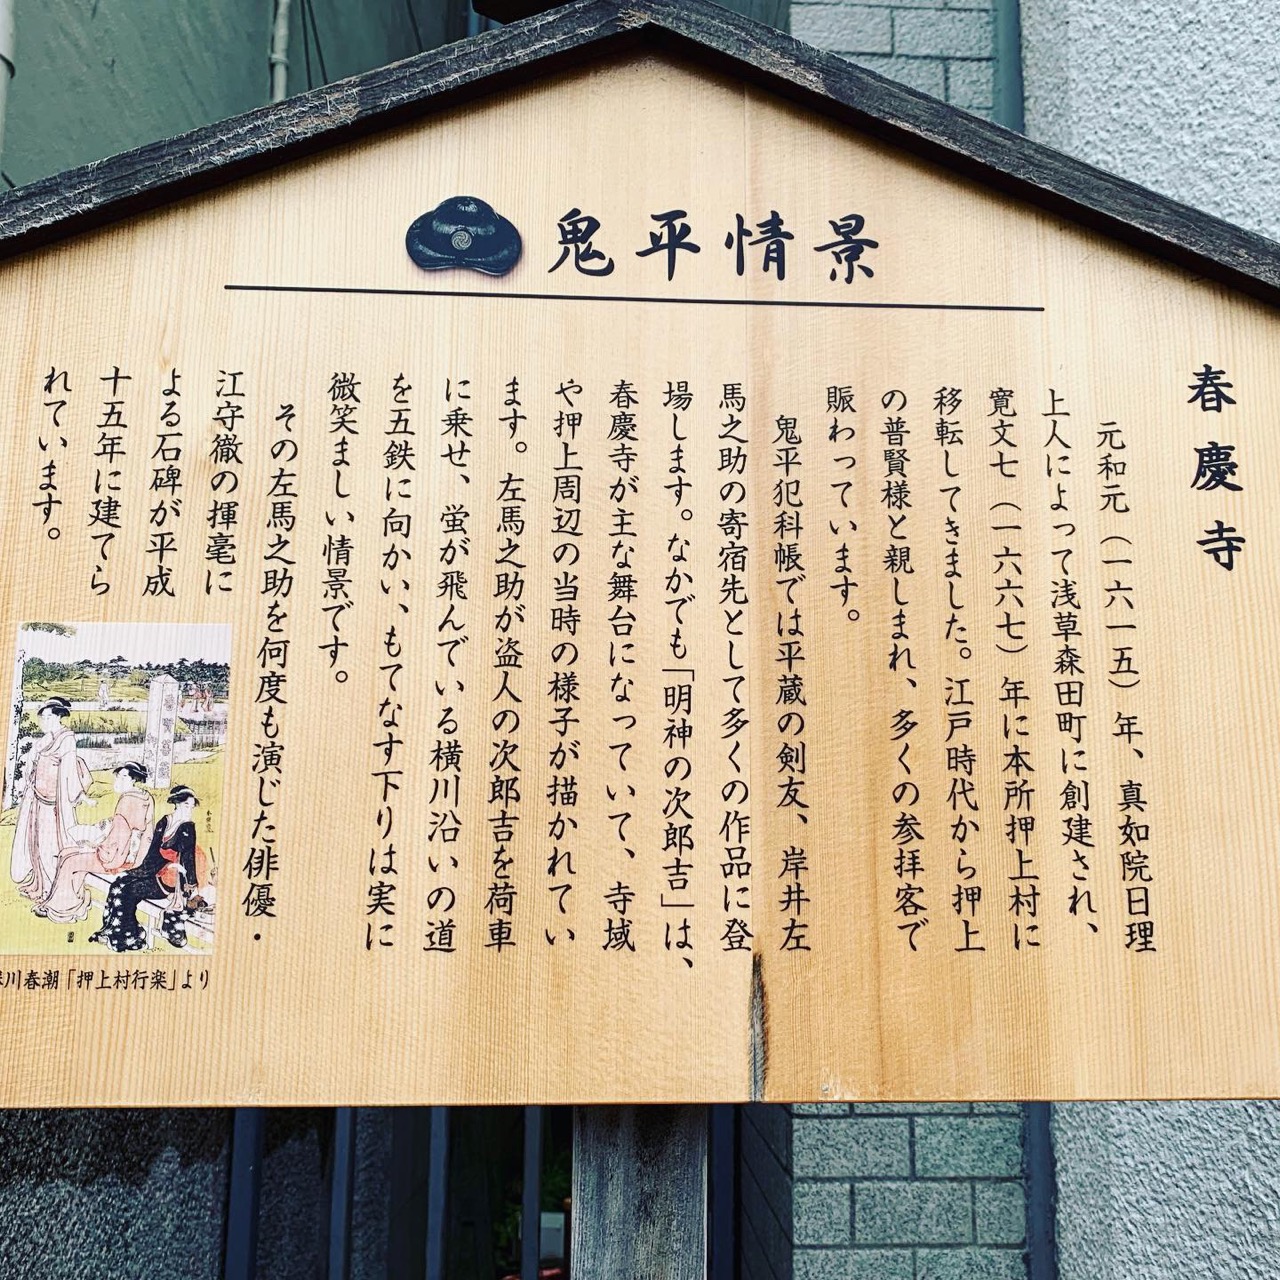 鬼平情景
春慶寺
元和元（一六一五）年、真如院日理
上人によって浅草森田町に創建され、
寛文七（一六六七）年に本所押上村に
移転してきました。江戸時代から押上
の普賢様と親しまれ、多くの参拝客で
賑わっています。
鬼平犯科帳では平蔵の剣友、岸井左
馬之助の寄宿先として多くの作品に登
場します。なかでも「明神の次郎吉」は、
春慶寺が主な舞台になっていて、寺域
や押上周辺の当時の様子が描かれてい
ます。左馬之助が盗人の次郎吉を荷車
に乗せ、蛍が飛んでいる横川沿いの道
を五鉄に向かい、もてなす下りは実に
微笑ましい情景です。
その左馬之助を何度も演じた俳優・
江守徹の揮毫に
よる石碑が平成
十五年に建てら
れています。
川春潮「押上村行楽」より